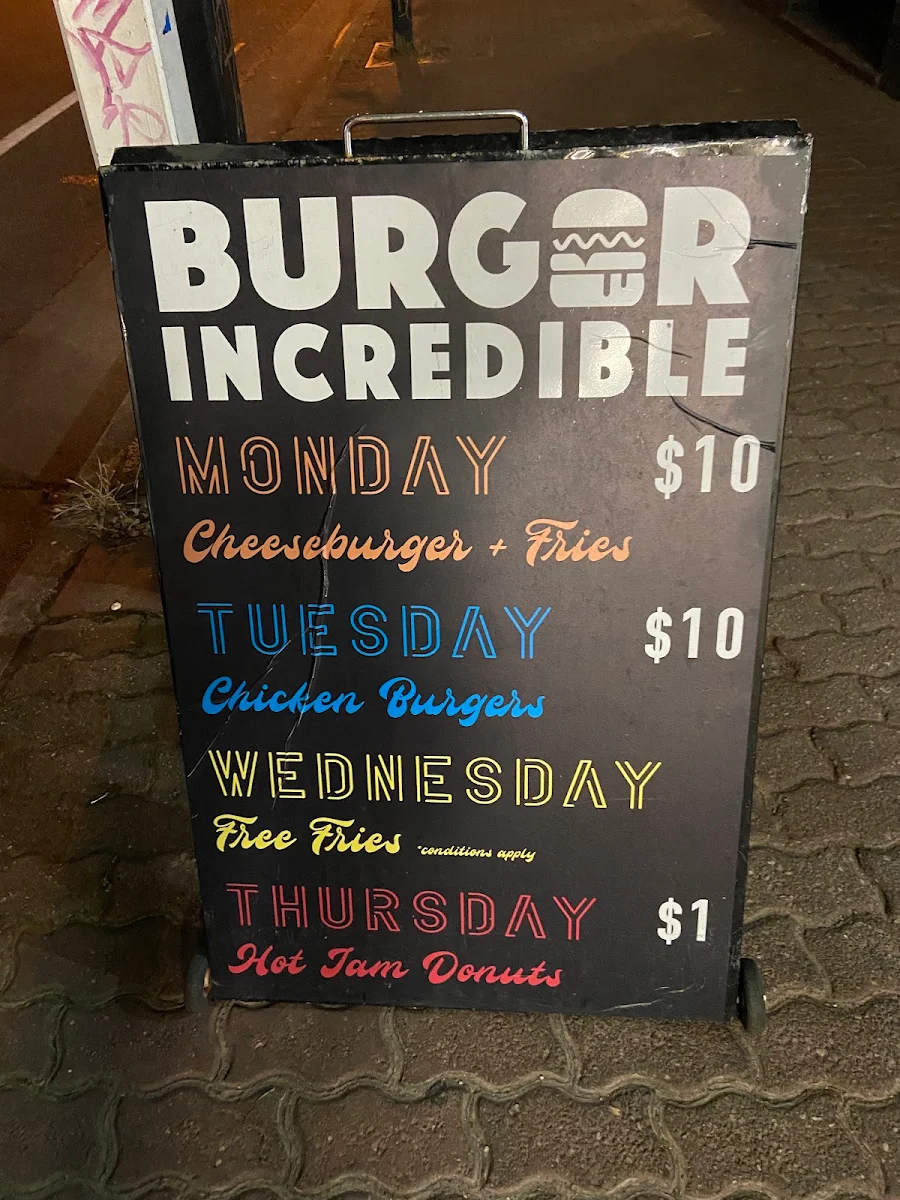 BURGER
INCREDIBLE
MONDAY $10
Cheeseburger + Fries
TUESDAY $10
Chicken Burgers
WEDNESDAY
Free Fries *conditions apply
THURSDAY $1
Hot Jam Donuts